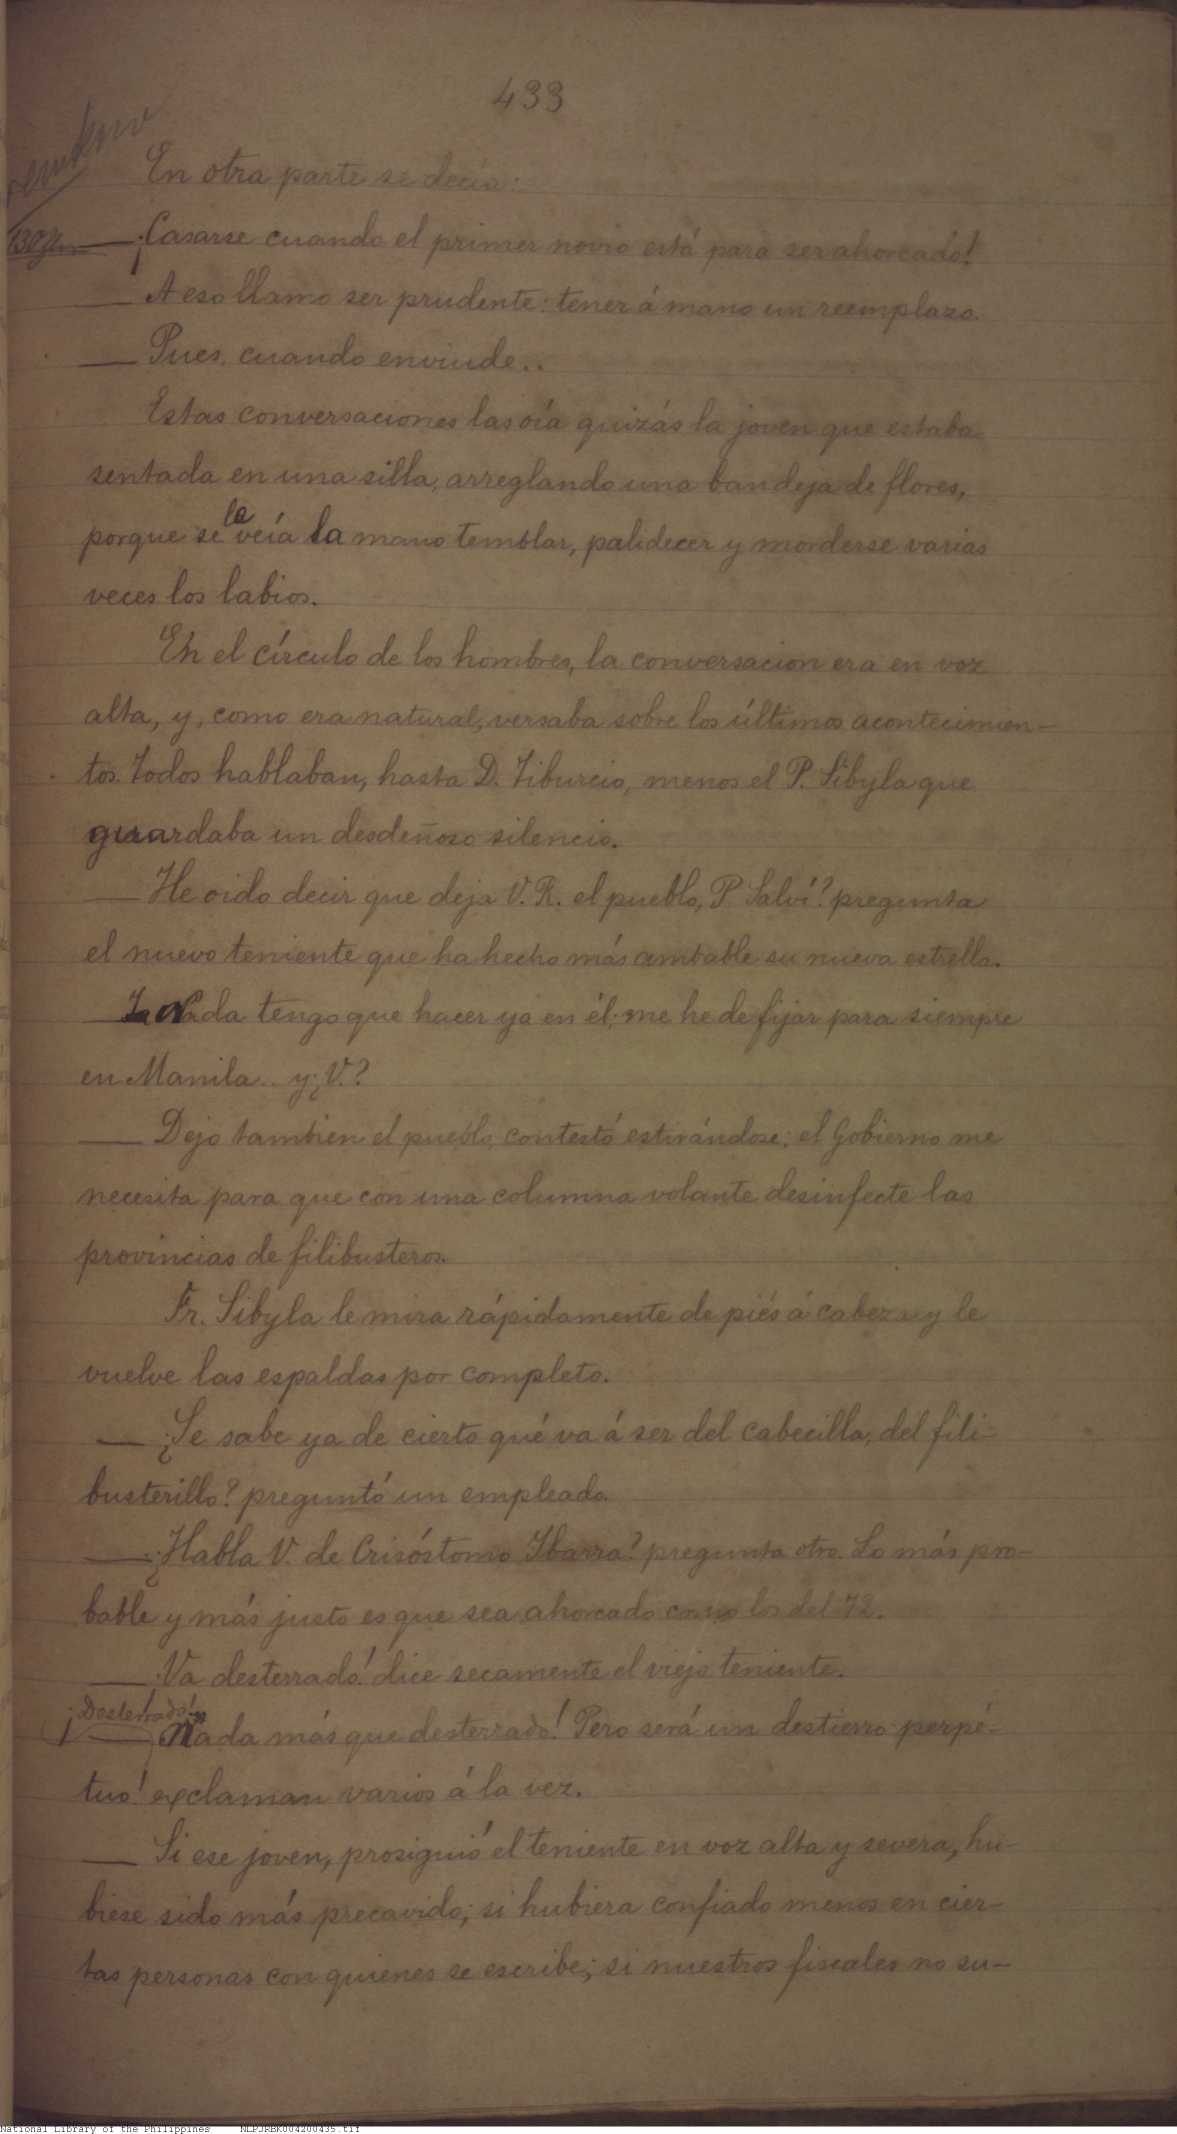 433
En otra parte se decía:
— ¡Casarse cuando el primer novio está para ser ahorcado!
— A eso llamo ser prudente: tener á mano un reemplazo.
— Pues, cuando enviude..
Estas conversaciones las oía quizás la joven que estaba
sentada en una silla, arreglando una bandeja de flores,
porque se le veía la mano temblar, palidecer y morderse varias
veces los labios.
En el círculo de los hombres, la conversacion era en voz
alta, y, como era natural, versaba sobre los últimos acontecimien-
tos. Todos hablaban, hasta D. Tiburcio, menos el P. Sibyla que
guardaba un desdeñoso silencio.
— He oido decir que deja V. R. el pueblo, P. Salví? pregunta
el nuevo teniente que ha hecho más amable su nueva estrella.
— Nada tengo que hacer ya en él; me he de fijar para siempre
en Manila.. y ¿V.?
— Dejo tambien el pueblo, contestó estirándose; el Gobierno me
necesita para que con una columna volante desinfecte las
provincias de filibusteros.
Fr. Sibyla le mira rápidamente de piés á cabeza y le
vuelve las espaldas por completo.
— ¿Se sabe ya de cierto qué va á ser del cabecilla, del fili-
busterillo? preguntó un empleado.
— ¿Habla V. de Crisóstomo Ibarra? pregunta otro. Lo más pro-
bable y más justo es que sea ahorcado como los del 72.
— Va desterrado! dice secamente el viejo teniente.
— ¡Desterrado! Nada más que desterrado! Pero será un destierro perpé-
tuo! exclaman varios á la vez.
— Si ese joven, prosiguió el teniente en voz alta y severa, hu-
biese sido más precavido; si hubiera confiado menos en cier-
tas personas con quienes se escribe; si nuestros fiscales no su-
National Library of the Philippines NLPJRBK004200435.tif